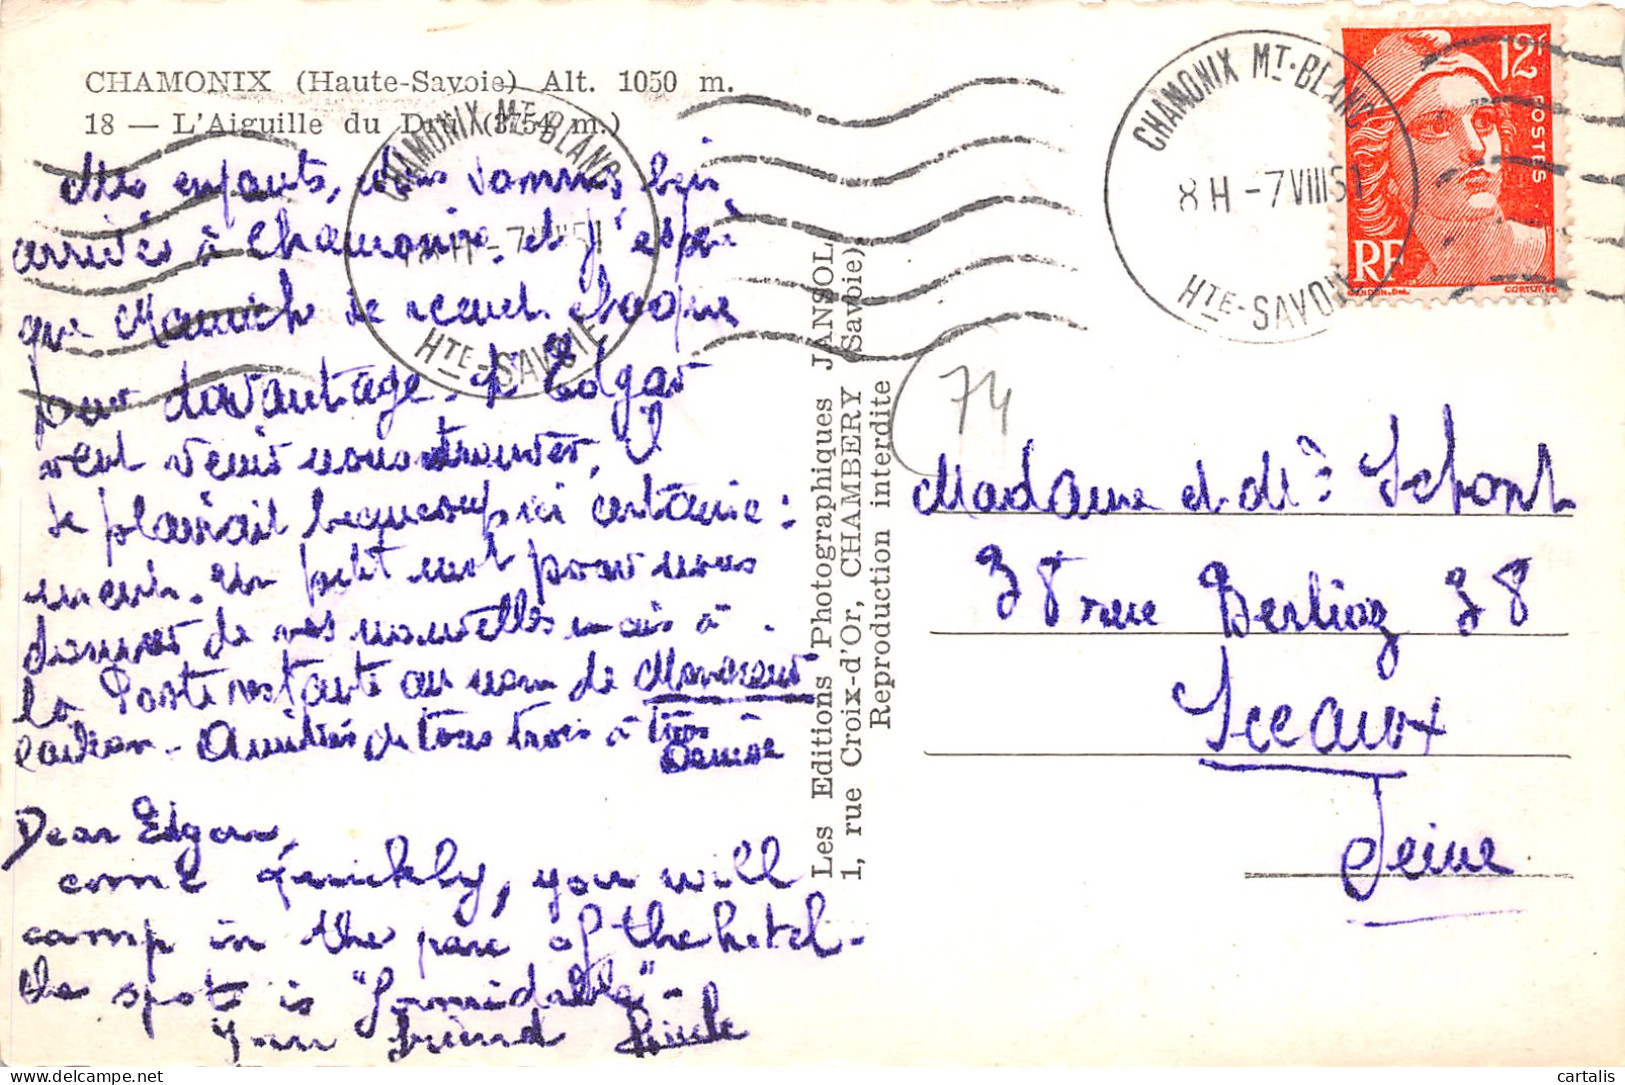 CHAMONIX (Haute-Savoie) Alt. 1050 m.
18 — L'Aiguille du Dru (3754 m.)
CHAMONIX MT-BLANC
HTE-SAVOIE
Mes enfants, nous sommes bien
arrivés à Chamonix et j'espère
que
pour davantage. Si Edgar
veut venir nous trouver, il
se plairait beaucoup ici certaine:
ment. Un petit mot pour nous
donner de vos nouvelles mais à
la Poste restante au nom de
Amitiés de tous trois à tous
Denise
Dear Edgar,
come quickly, you will
camp in the parc of the hotel -
the spot is "formidable" -
Your friend
Les Editions Photographiques JANSOL
1, rue Croix-d'Or, CHAMBERY (Savoie)
Reproduction interdite
CHAMONIX MT-BLANC
8H -7 VIII 51
HTE-SAVOIE
12F
POSTES
RF
GANDON.DEL.
CORTOT.SC
74
Madame et Mr
38 rue Berlioz 38
Sceaux
Seine
cartalis